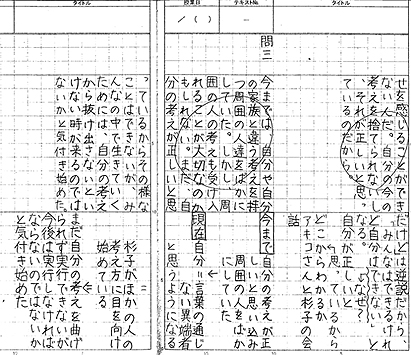 タイトル
テキストNo.
授業日
タイトル
／（　）
せを感じることができ
ない人だ。今の
考えを捨てられない
、それが正しいと思っ
ているのだから。
問三
今までは、自分や自分
の家族と違う考えを持
つ周囲の人達をばか
にしていた。しかし、周
囲の人の考えも受け入
れることが大切なのでは
ないか。また、自
分の考えが正しいと思
っているからその様な
ことは
んなの中で生きていく
ためには、自分の考え
から抜け出さないとい
けない時が来るのでは
ないかと気付き始めた
だけどは逆説だから、
「みんなはできるけれど
自分はできない」と
なる。→なぜ？
自分が正しいと
しているから
どこからわかるか
アキコさんと杉子の会
話
今まで 自分の考えが正
しいと思い込み
周囲の人をばか
にしていた。
現在 自分＝言葉の通じ
ない異端者
と思うように
杉子がほかの人の
考え方に目を向け
始めている
まだ自分の考えを曲げ
られず実行できないが
今後は実行しなければ
ならないのではないか
と気付き始めた